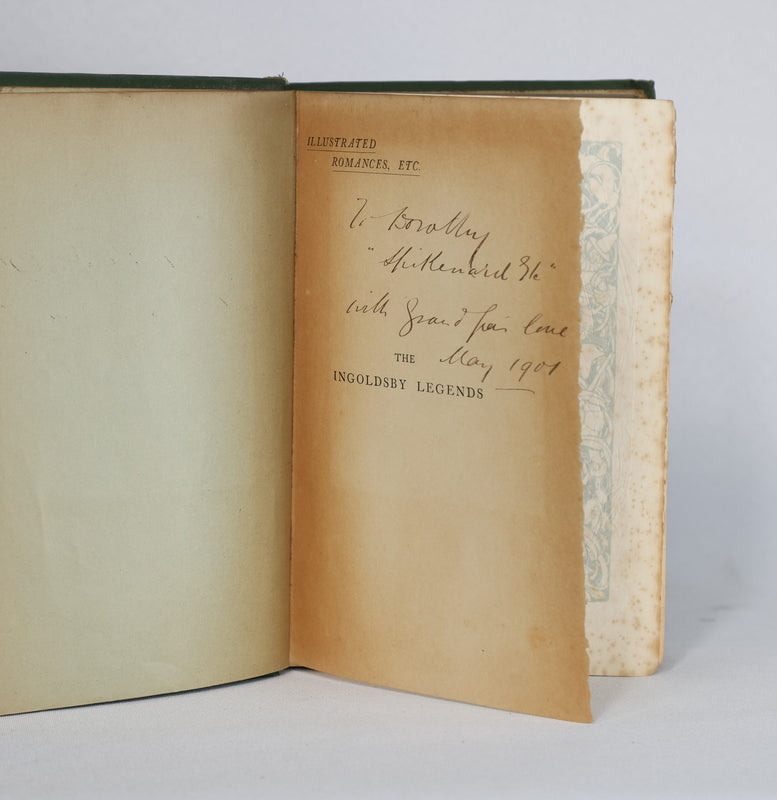 ILLUSTRATED
ROMANCES, ETC.
To Dorothy
"Spikenard
with Grand pa's love
May 1901
THE
INGOLDSBY LEGENDS